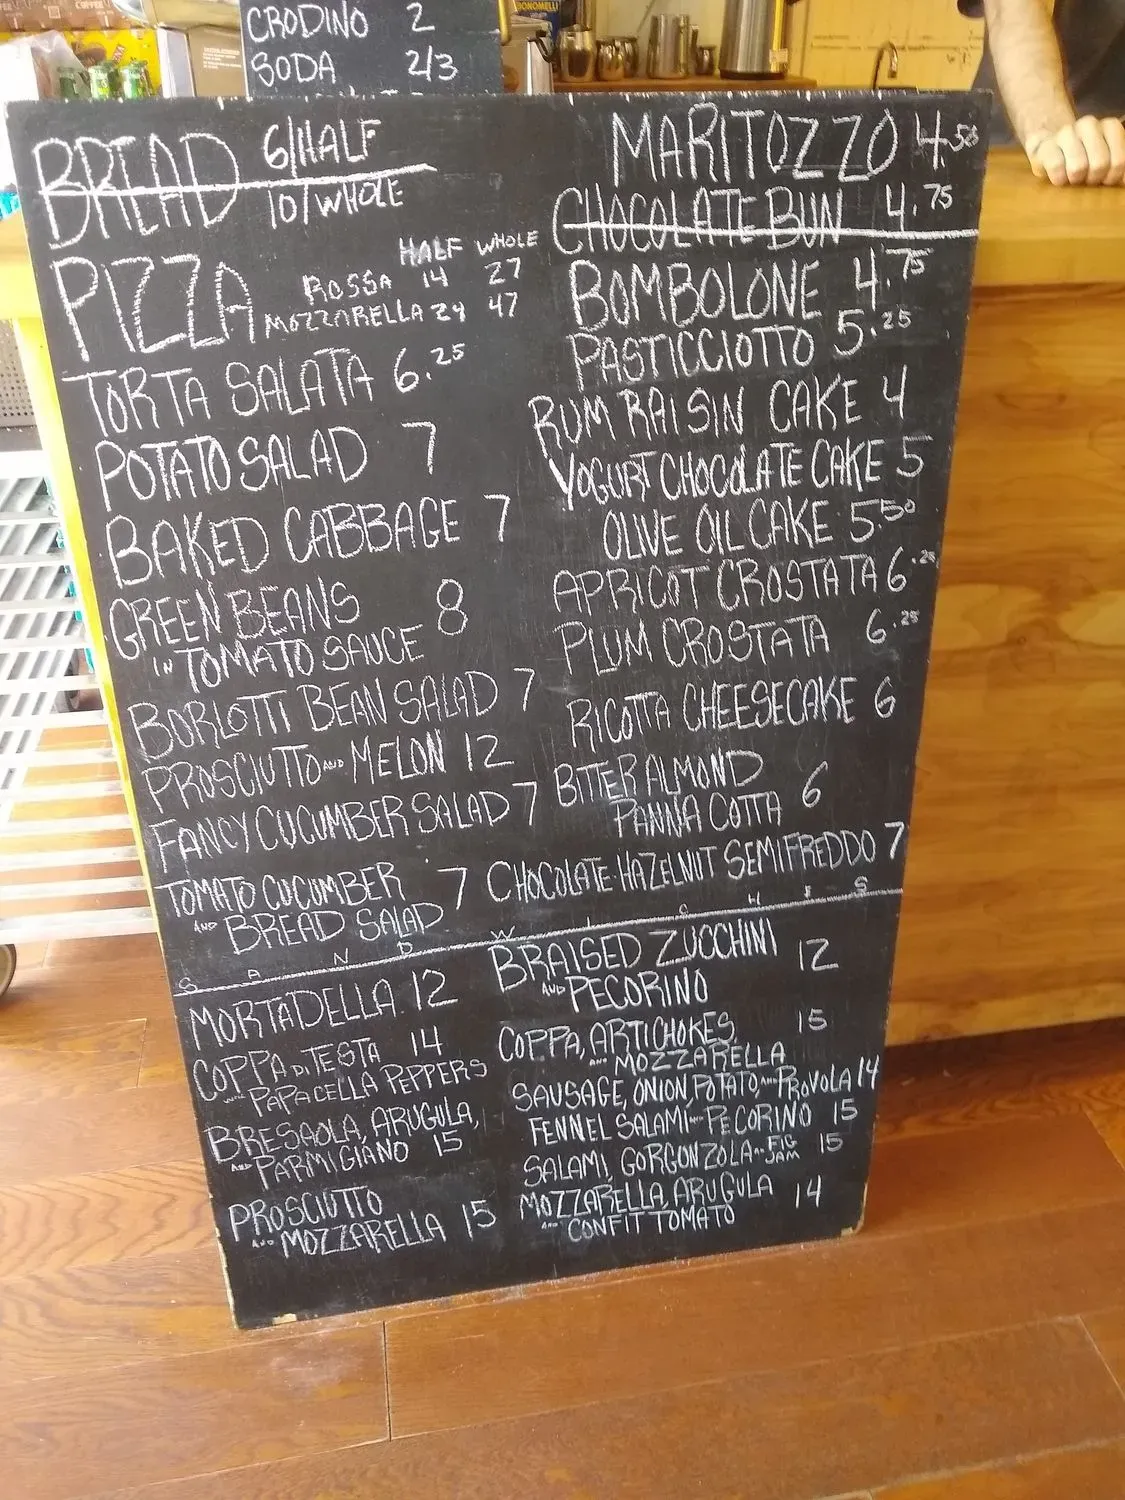 BONOMELLI
CRODINO 2
SODA 2/3
BREAD 6/HALF
10/WHOLE
HALF WHOLE
PIZZA ROSSA 14 27
MOZZARELLA 24 47
TORTA SALATA 6.25
POTATO SALAD 7
BAKED CABBAGE 7
GREEN BEANS 8
IN TOMATO SAUCE
BORLOTTI BEAN SALAD 7
PROSCIUTTO AND MELON 12
FANCY CUCUMBER SALAD 7
TOMATO CUCUMBER 7
AND BREAD SALAD
MARITOZZO 4.50
CHOCOLATE BUN 4.75
BOMBOLONE 4.75
PASTICCIOTTO 5.25
RUM RAISIN CAKE 4
YOGURT CHOCOLATE CAKE 5
OLIVE OIL CAKE 5.50
APRICOT CROSTATA 6.25
PLUM CROSTATA 6.25
RICOTTA CHEESECAKE 6
BITTER ALMOND
PANNA COTTA 6
CHOCOLATE-HAZELNUT SEMIFREDDO 7
SANDWICHES
MORTADELLA 12
COPPA DI TESTA 14
PAPACELLA PEPPERS
BRESAOLA, ARUGULA,
AND PARMIGIANO 15
PROSCIUTTO
AND MOZZARELLA 15
BRAISED ZUCCHINI 12
AND PECORINO
COPPA, ARTICHOKES, 15
AND MOZZARELLA
SAUSAGE, ONION, POTATO, AND PROVOLA 14
FENNEL SALAMI AND PECORINO 15
SALAMI, GORGONZOLA AND FIG JAM 15
MOZZARELLA, ARUGULA 14
AND CONFIT TOMATO